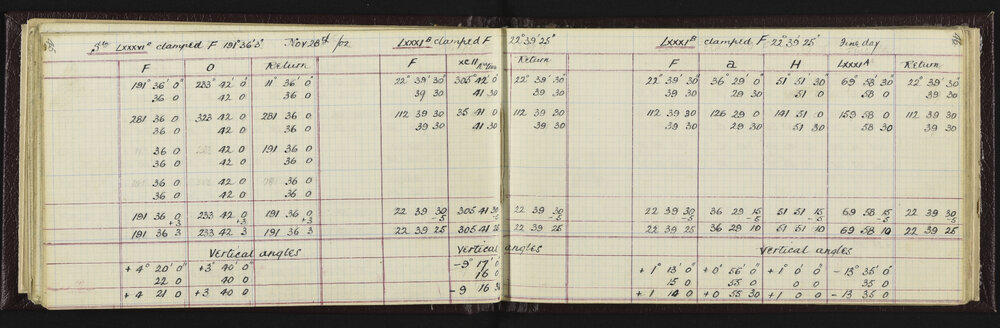 Stn LXXXVI⁰ clamped F 191° 36' 3" Nov 28th /02
F O Return
191° 36' 0" 233° 42' 0" 11° 36' 0"
36 0 42 0 36 0
281 36 0 323 42 0 281 36 0
36 0 42 0 36 0
36 0 42 0 191 36 0
36 0 42 0 36 0
36 0 42 0 36 0
36 0 42 0 36 0
191 36 0 233 42 0 191 36 0
+3 +3 +3
191 36 3 233 42 3 191 36 3
Vertical angles
+ 4° 20' 0" +3° 40' 0"
22 0 40 0
+ 4 21 0 +3 40 0
LXXXIᴮ clamped F 22° 39' 25"
F XCII Return
22° 39' 30" 305° 42' 0" 22° 39' 30"
39 30 41 30 39 30
112 39 30 35 41 0 112 39 30
39 30 41 30 39 30
22 39 30 305 41 30 22 39 30
-5 -5 -5
22 39 25 305 41 25 22 39 25
Vertical angles
-9° 17' 0"
16 0
-9 16 30
LXXXIᴮ clamped F 22° 39' 25" Fine day
F a H LXXXIᴬ Return
22° 39' 30" 36° 29' 0" 51° 51' 30" 69° 58' 30" 22° 39' 30"
39 30 29 30 51 0 58 0 39 30
112 39 30 126 29 0 141 51 0 159 58 0 112 39 30
39 30 29 30 51 30 58 30 39 30
22 39 30 36 29 15 51 51 15 69 58 15 22 39 30
-5 -5 -5 -5 -5
22 39 25 36 29 10 51 51 10 69 58 10 22 39 25
Vertical angles
+ 1° 13' 0" +0° 56' 0" +1° 0' 0" -13° 35' 0"
15 0 55 0 0 0 35 0
+ 1 14 0 +0 55 30 +1 0 0 -13 35 0